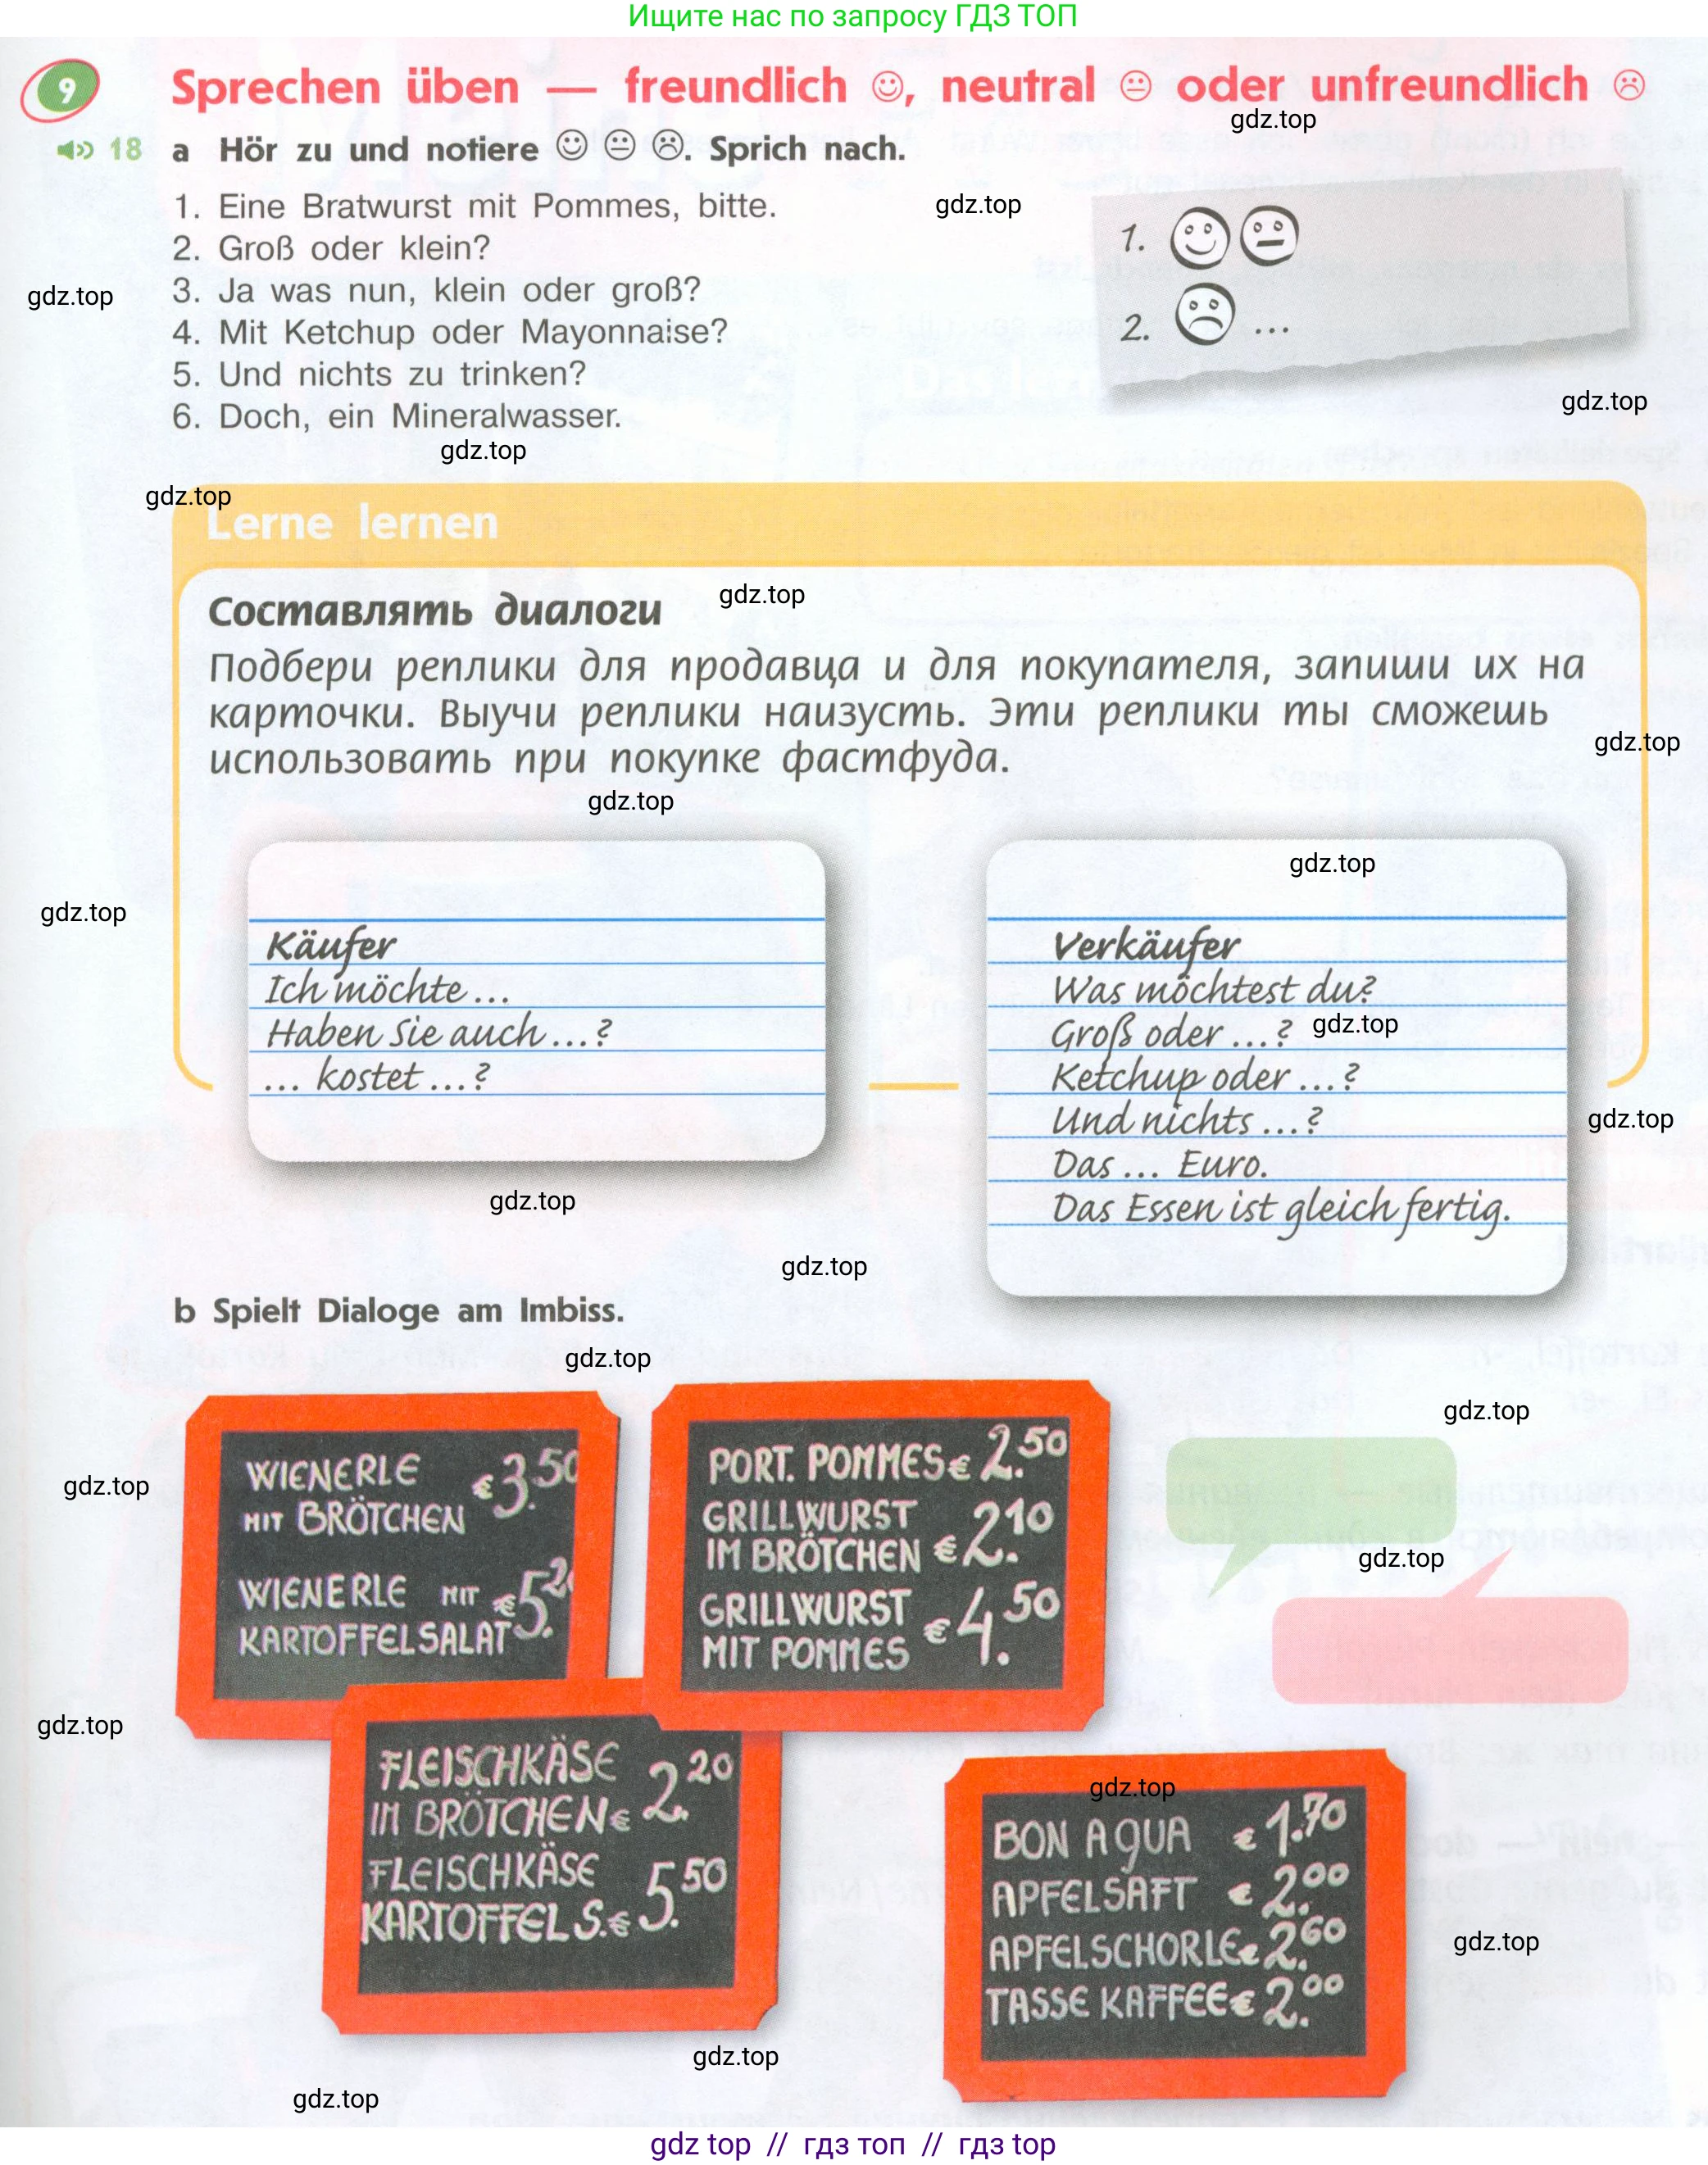 Ищите нас по запросу ГДЗ ТОП
9 Sprechen üben — freundlich ☺, neutral 😐 oder unfreundlich ☹
gdz.top
18 a Hör zu und notiere ☺ 😐 ☹. Sprich nach.
1. Eine Bratwurst mit Pommes, bitte.
gdz.top
2. Groß oder klein?
1.
3. Ja was nun, klein oder groß?
gdz.top
4. Mit Ketchup oder Mayonnaise?
2. ...
5. Und nichts zu trinken?
gdz.top
6. Doch, ein Mineralwasser.
gdz.top
gdz.top
Lerne lernen
Составлять диалоги
gdz.top
Подбери реплики для продавца и для покупателя, запиши их на
карточки. Выучи реплики наизусть. Эти реплики ты сможешь
gdz.top
использовать при покупке фастфуда.
gdz.top
gdz.top
gdz.top
Käufer
Ich möchte ...
Haben Sie auch ...?
... kostet ...?
Verkäufer
Was möchtest du?
Groß oder ...?
gdz.top
Ketchup oder ...?
Und nichts ...?
gdz.top
Das ... Euro.
Das Essen ist gleich fertig.
gdz.top
gdz.top
b Spielt Dialoge am Imbiss.
gdz.top
gdz.top
gdz.top
WIENERLE
MIT BRÖTCHEN € 3.50
WIENERLE MIT
KARTOFFELSALAT € 5.20
PORT. POMMES € 2.50
GRILLWURST
IM BRÖTCHEN € 2.10
GRILLWURST
MIT POMMES € 4.50
gdz.top
gdz.top
FLEISCHKÄSE
IM BRÖTCHEN € 2.20
FLEISCHKÄSE
KARTOFFELS. € 5.50
gdz.top
BON AQUA € 1.70
APFELSAFT € 2.00
APFELSCHORLE € 2.60
TASSE KAFFEE € 2.00
gdz.top
gdz.top
gdz.top
gdz top // гдз топ // гдз top